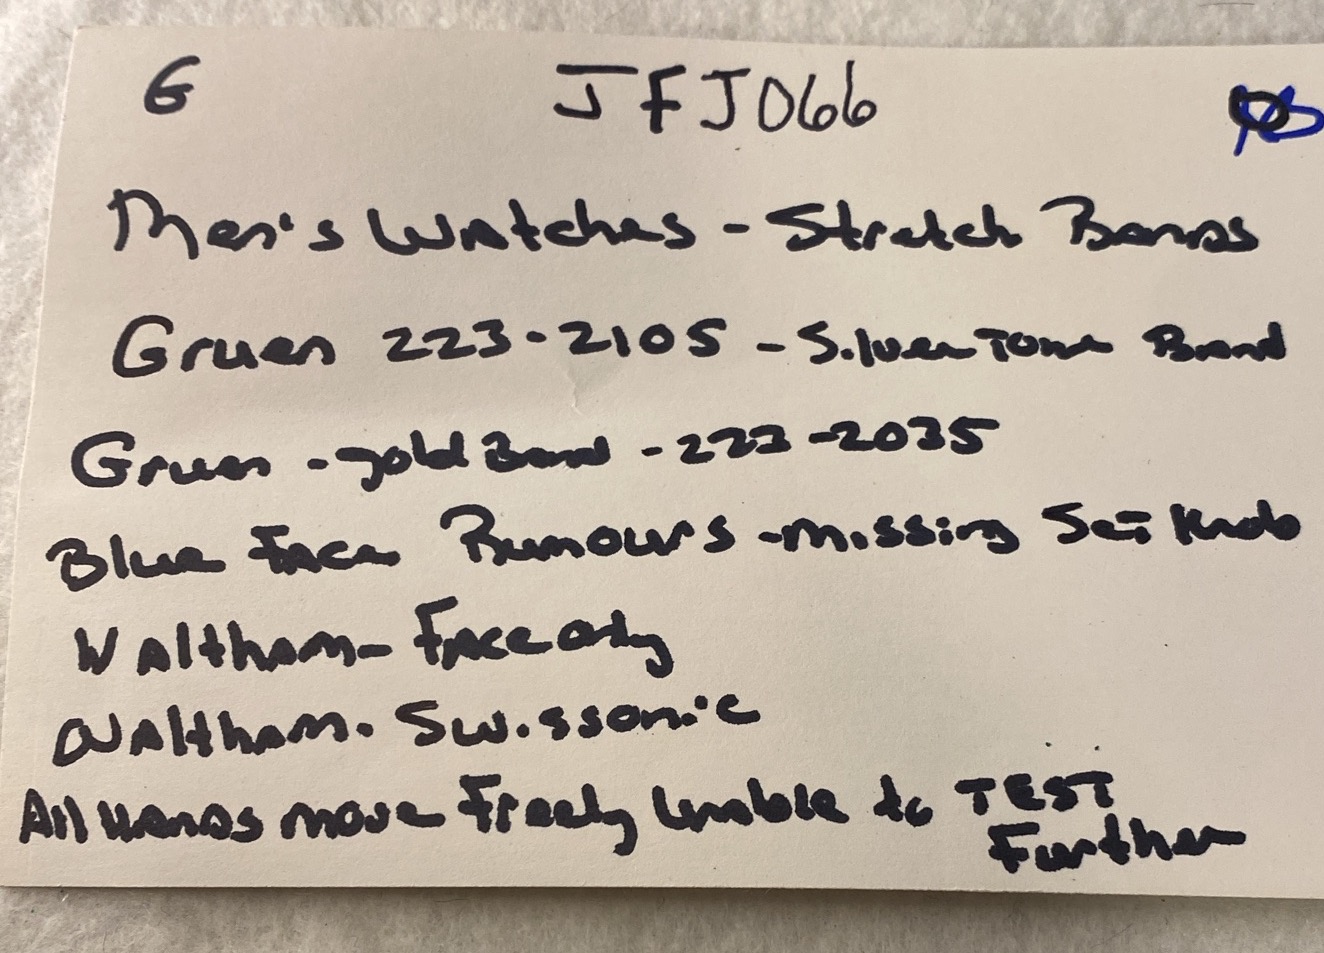 G JFJ066
Men's Watches - Stretch Bands
Gruen 223-2105 - Silver Tone Band
Gruen - gold Band - 223-2035
Blue Face Rumours - missing Set Knob
Waltham - Face only
Waltham. Swissonic
All Hands move Freely Unable to TEST
Further